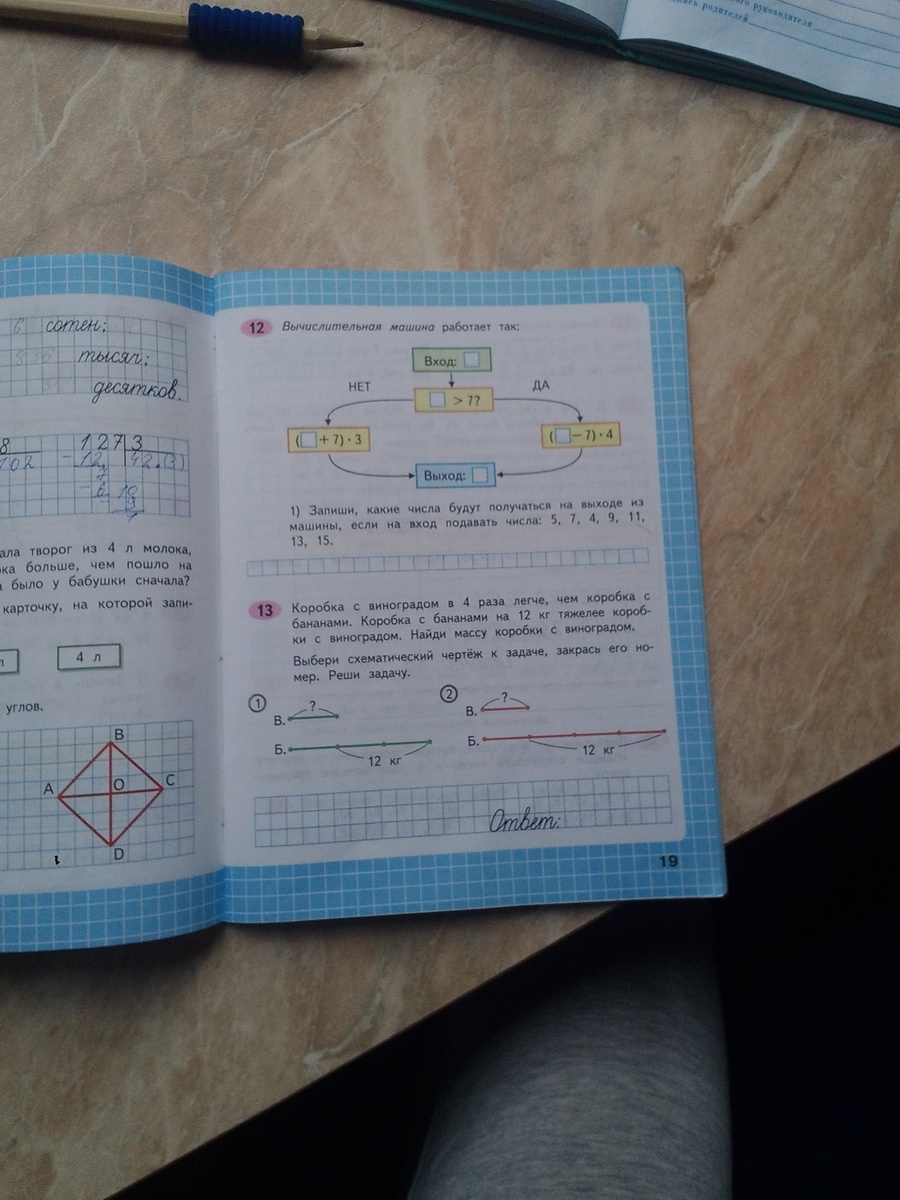 сотен;
тысяч;
десятков.
127 3
12
42
102
ала творог из 4 л молока,
ока больше, чем пошло на
было у бабушки сначала?
карточку, на которой запи-
4 л
углов.
B
A O C
D
12 Вычислительная машина работает так:
Вход:
НЕТ ДА
> 7?
( + 7) · 3
( − 7) · 4
Выход:
1) Запиши, какие числа будут получаться на выходе из
машины, если на вход подавать числа: 5, 7, 4, 9, 11,
13, 15.
13 Коробка с виноградом в 4 раза легче, чем коробка с
бананами. Коробка с бананами на 12 кг тяжелее короб-
ки с виноградом. Найди массу коробки с виноградом.
Выбери схематический чертёж к задаче, закрась его но-
мер. Реши задачу.
1 2
? ?
В. В.
Б. Б.
12 кг 12 кг
Ответ:
19
руководителя
родителей